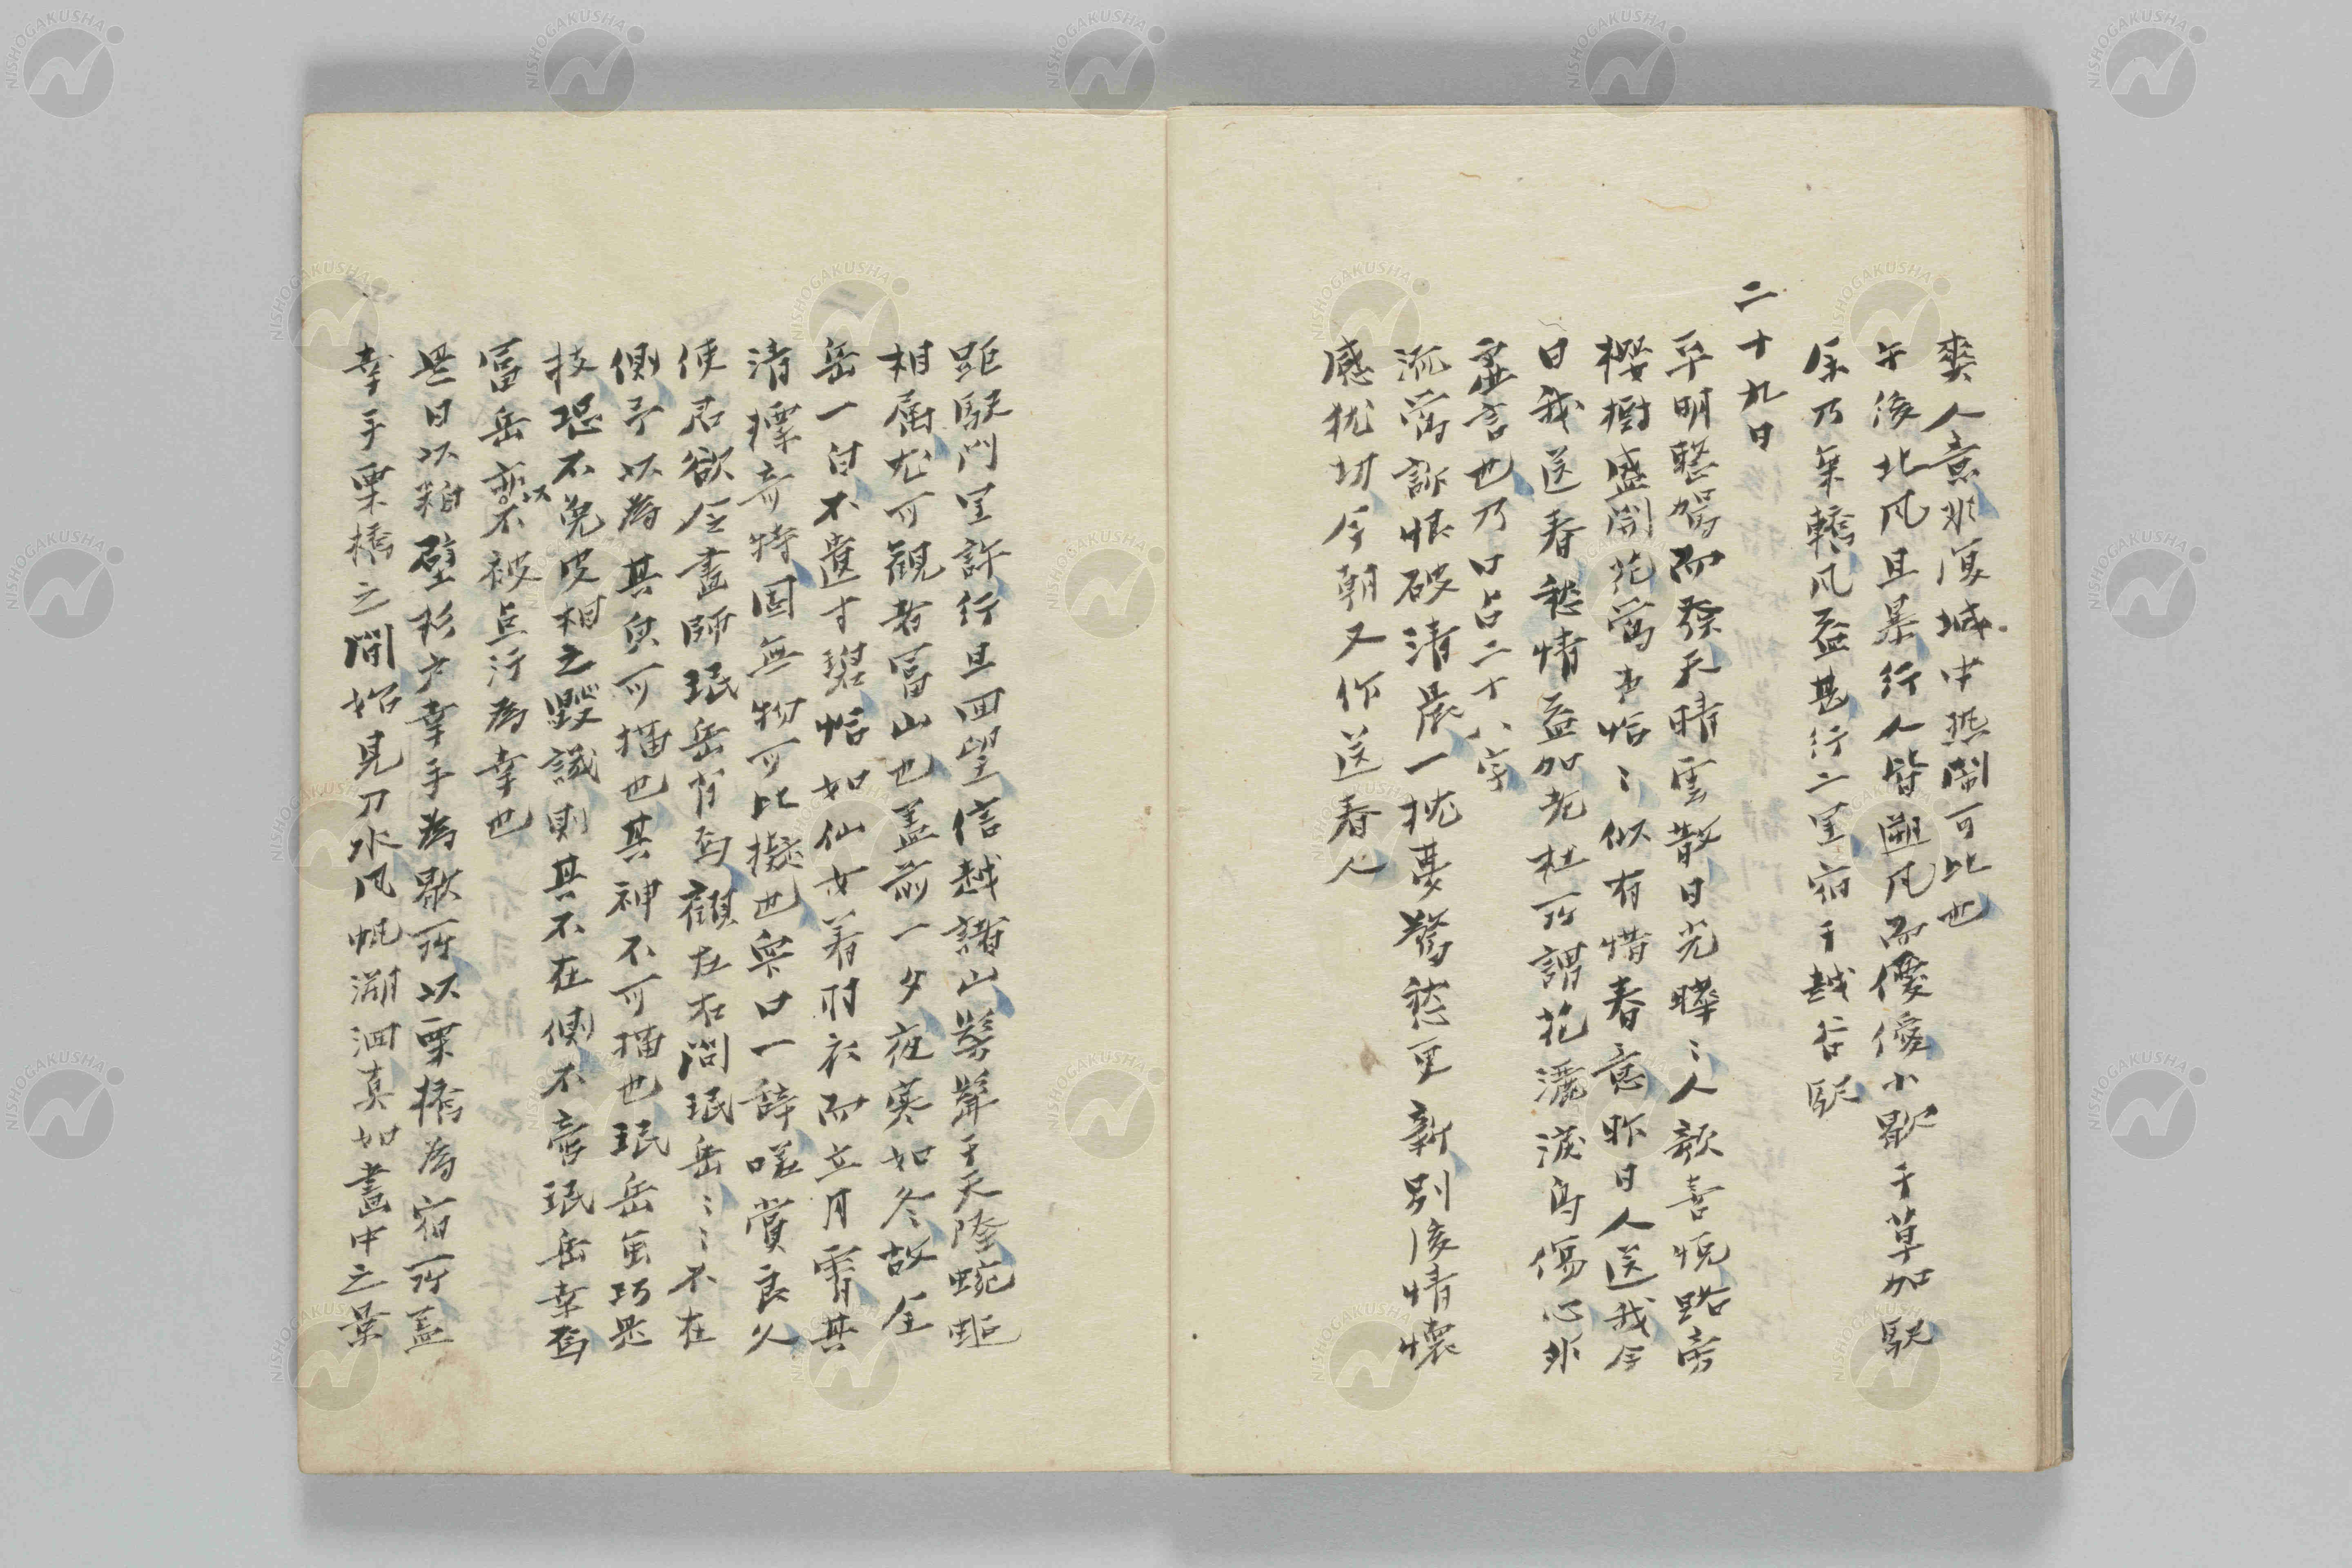 爽人意非厦城中熱鬧可比也
午後北风且暴行人皆遡风而僾僾小歇于草加駅
余乃乗轎风益甚行二里宿于越谷駅
二十九日
平明整駕而発天晴雲散日光曄〻人歓喜悦路旁
桜樹盛開花鶯声恰〻似有惜春意昨日人送我今
日我送春愁情益加老杜所謂花濺涙鳥傷心非
虚言也乃口占二十八字
流鶯訴恨破清晨一枕夢驚愁更新別後情懐
感犹切今朝又作送春人
距駅門里許行且四望信越諸山鬱聳于天際蜿蜒
相属尤可観者富山也蓋前一夕夜寒如冬故全
岳一白不遺寸碧恰如仙女着羽衣而立月霄其
清標奇特固無物可比擬也衆口一辞嗟賞良久
使君欲令画師珉岳写焉顧左右問珉岳〻〻不在
側予以為其皃可描也其神不可描也珉岳虽巧思
技恐不免皮相之毀譏則其不在側不啻珉岳幸焉
富岳亦以不被点汚為幸也
是日以粕壁杉戸幸手為歇所以栗橋為宿所蓋
幸手栗橋之間始見刀水风帆溯洄真如画中之景
NISHOGAKUSHA